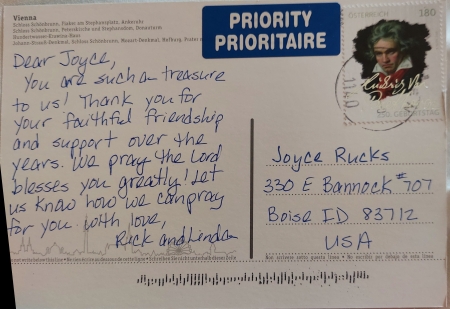 Vienna
Schloss Schönbrunn, Fiaker am Stephansplatz, Ankeruhr
Schloss Schönbrunn, Peterskirche und Stephansdom, Donauturm
Hundertwasser-Krawina-Haus
Johann-Strauß-Denkmal, Schloss Schönbrunn, Mozart-Denkmal, Hofburg, Prater
PRIORITY
PRIORITAIRE
ÖSTERREICH 180
GEBURTSTAG
Dear Joyce,
You are such a treasure
to us! Thank you for
your faithful friendship
and support over the
years. We pray the Lord
blesses you greatly! Let
us know how we can pray
for you with love,
Rick and Linda
Joyce Rucks
330 E Bannock #707
Boise ID 83712
USA